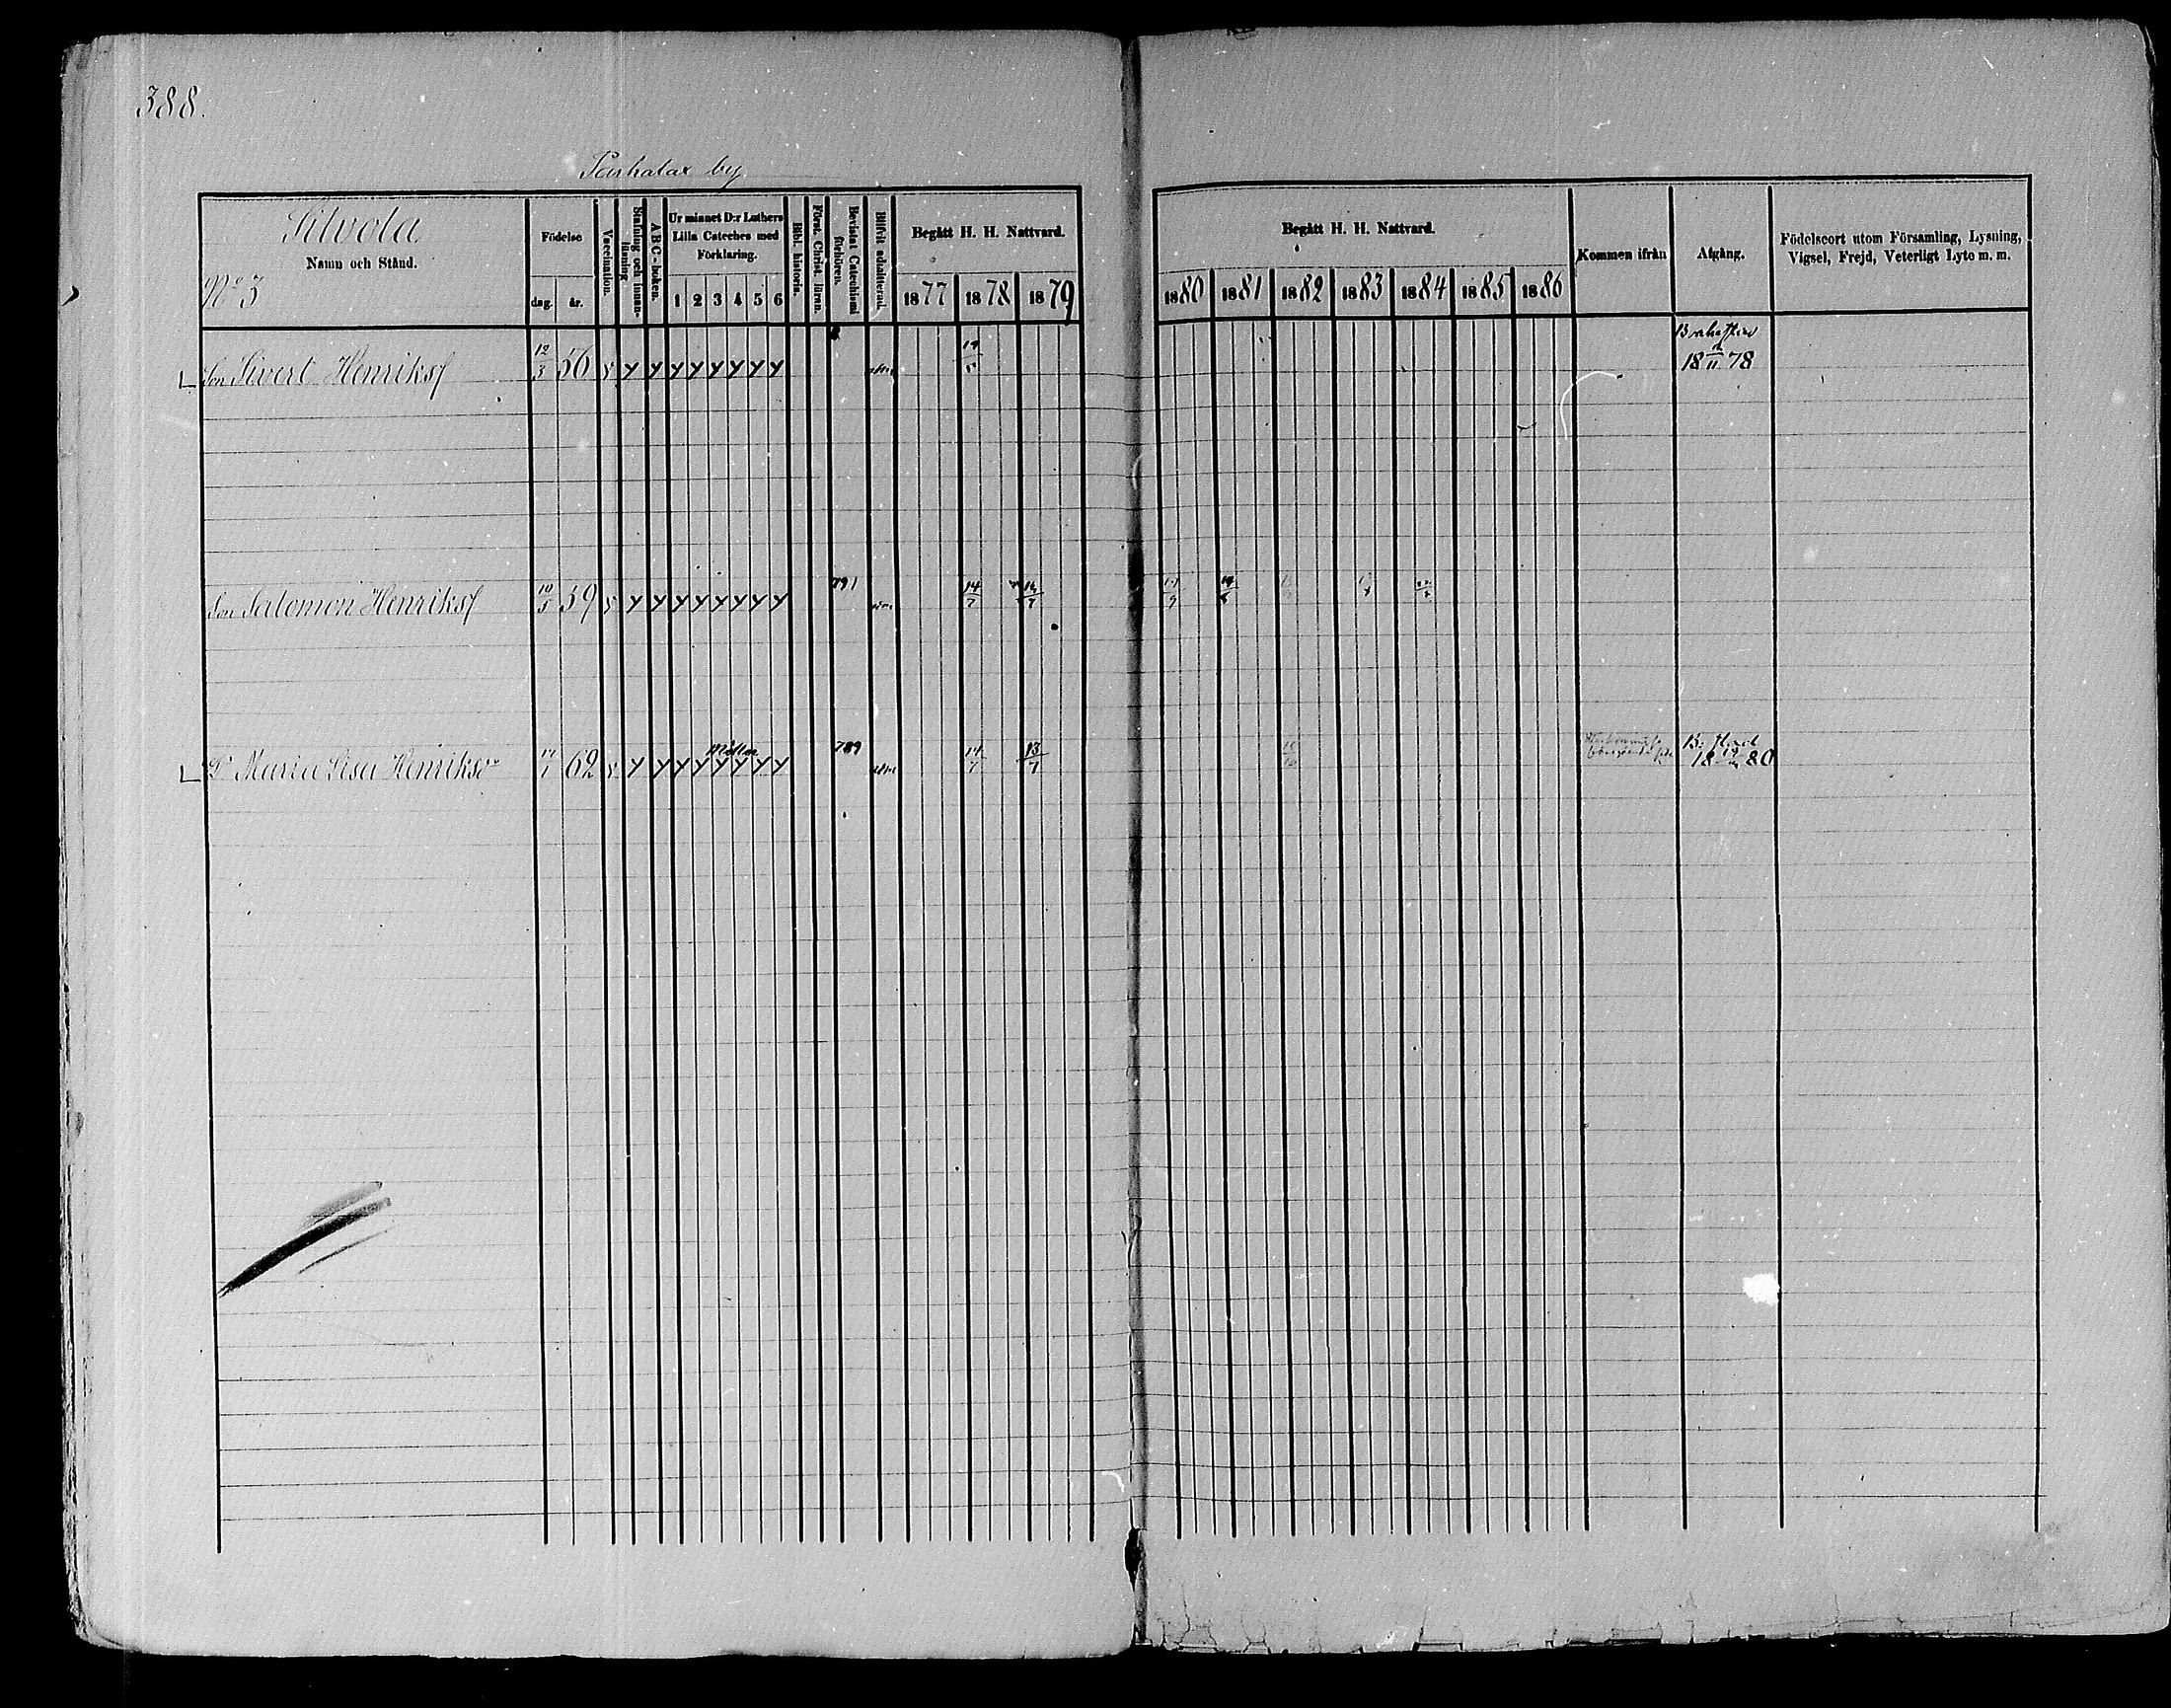 388.
by
Silvola
Namn och Stånd.
No 3
Födelse
dag. år.
Vaccination.
Stafning och innanläsning
ABC-boken.
Ur minnet D:r Luthers
Lilla Cateches med
Förklaring.
1 2 3 4 5 6
Bibl. historia.
Först. Christ. läran.
Bevistat Catechismi förhören.
Blifvit admitterad.
Begått H. H. Nattvard.
1877 1878 1879
Begått H. H. Nattvard.
1880 1881 1882 1883 1884 1885 1886
Kommen ifrån
Afgång.
Födelseort utom Församling, Lysning,
Vigsel, Frejd, Veterligt Lyte m. m.
Son Sivert Henriksf 12/3 56 18 11 78
Son Salomon Henriksf 10/5 59 791 14/7
Dr Maria Lisa Henriksdr 62 789 14/7 13/7 18 80